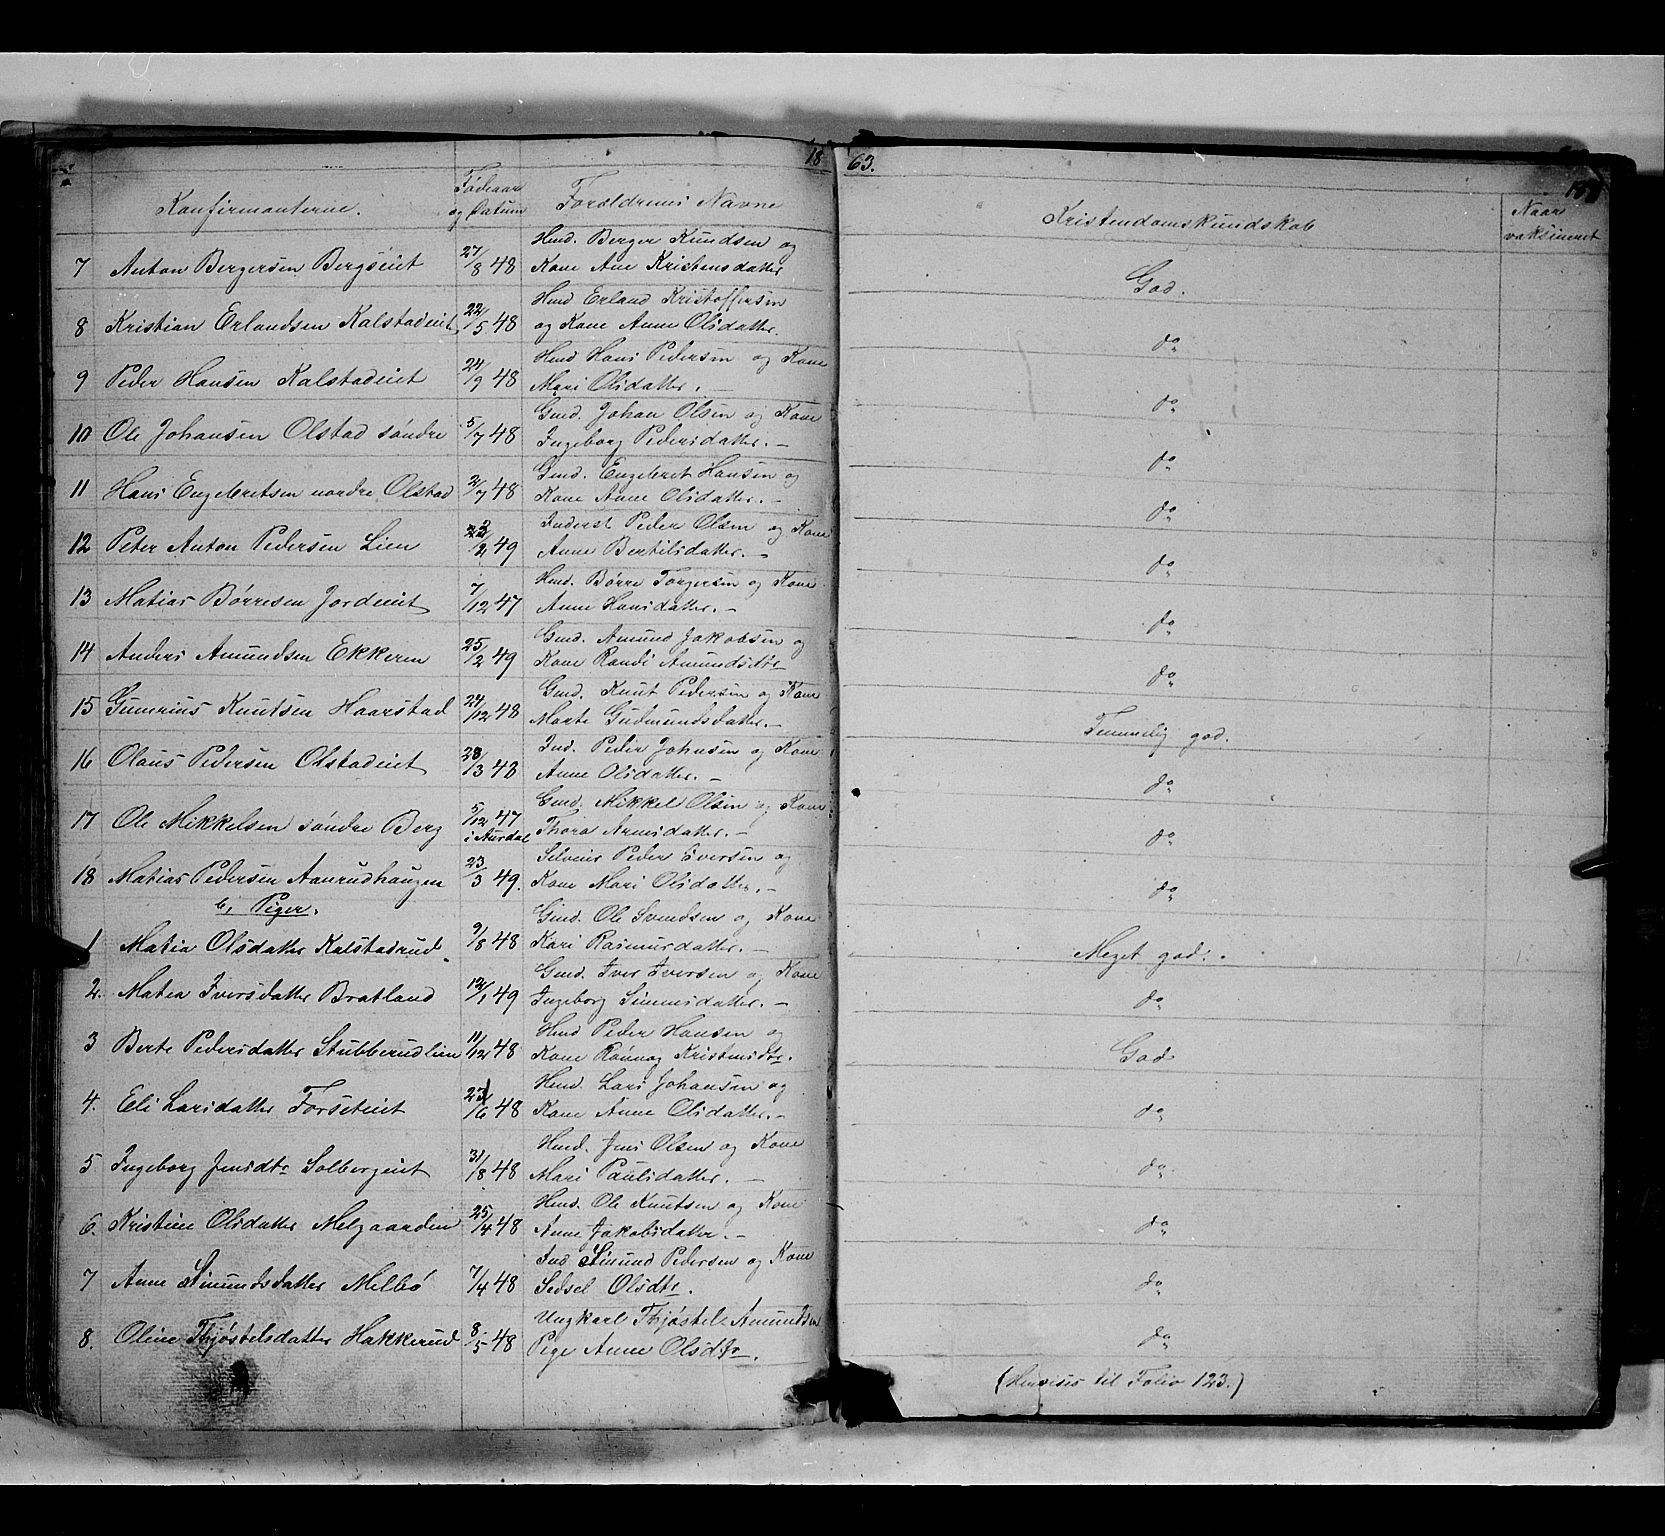 18 63.
Konfirmanterne. Fødeaar og Datum Forældrenes Navne Kristendomskundskab Naar vaksineret
7 Anton Bergersen Bergseiet 27/8 48 Husd. Berger Knudsen og
Kone Ane Kristensdatter God.
8 Kristian Erlandsen Kalstadeiet 22/5 48 Husd Erland Kristoffersen
og Kone Anne Olsdatter. do
9 Peder Hansen Kalstadeiet 24/9 48 Husd Hans Pedersen og Kone
Mari Olsdatter. — do
10 Ole Johansen Olstad søndre 5/7 48 Gmd. Johan Olsen og Kone
Ingeborg Pedersdatter. — do
11 Hans Engebretsen nordre Olstad 2/7 48 Gmd. Engebret Hansen og
Kone Anne Olsdatter. — do
12 Peter Anton Pedersen Lien /2 49 Inderst Peder Olsen og Kone
Anne Bertilsdatter. — do
13 Matias Børresen Jordeiet 7/12 47 Husd. Børre Torgersen og Kone
Anne Hansdatter. — do
14 Anders Amundsen Ekkeren 25/2 49 Gmd. Amund Jakobsen og
Kone Randi Amundsdtr do
15 Gunerius Knutsen Haarstad 24/12 48 Gmd. Knut Pedersen og Kone
Marte Gudmundsdatter. — Temmelig god.
16 Olaus Pedersen Olstadeiet 23/3 48 Ind. Peder Johnsen og Kone
Anne Olsdatter. — do
17 Ole Mikkelsen søndre Berg 5/12 47 i Aurdal Gmd. Mikkel Olsen og Kone
Thora Arnesdatter. — do
18 Matias Pedersen Aanrudhaugen 23/3 49. Selveier Peder Iversen og
Kone Mari Olsdatter. — do
b, Piger.
1 Matea Olsdatter Kalstadrud. 9/8 48 Gmd. Ole Svendsen og Kone
Kari Rasmusdatter. — Meget god.
2. Matea Iversdatter Bratland 12/1 49 Gmd. Iver Iversen og Kone
Ingeborg Simensdatter. — do
3 Berte Pedersdatter Stubberudlien 11/12 48 Husd Peder Hansen og
Kone Rønnog Kristensdtr. God
4. Eli Larsdatter Forseteiet /6 48 Husd. Lars Johansen og
Kone Anne Olsdatter. — do
5 Ingeborg Jensdtr Solbergeiet 31/8 48 Husd. Jens Olsen og Kone
Mari Paulsdatter. — do
6. Kristine Olsdatter Melgaarden 25/4 48 Husd. Ole Knutsen og Kone
Anne Jakobsdatter. — do
7 Anne Simundsdatter Melbø 7/4 48 Ind Simund Pedersen og Kone
Sedsel Olsdtr. do
8. Oline Thjøstelsdatter Hakkerud 8/5 48 Ungkarl Thjøstel Amundsen
Pige Anne Olsdtr. do
(Henvises til Folio 123.)